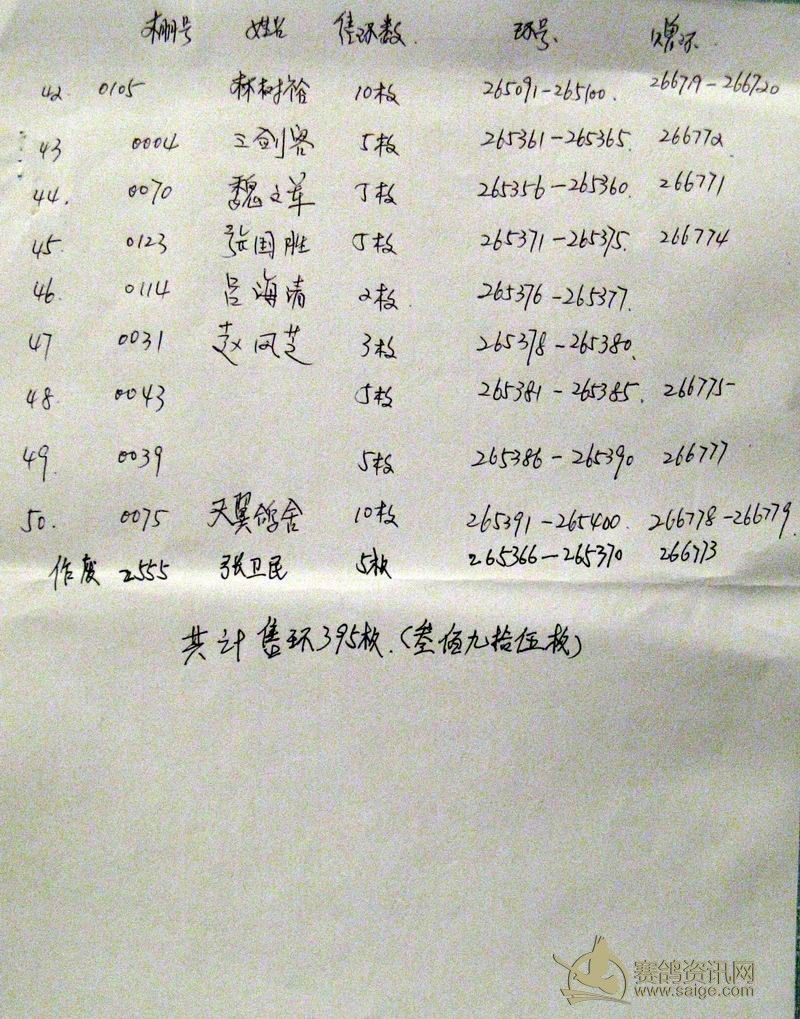 棚号 姓名 售环数 环号 赠环
42 0105 林树裕 10枚 265091-265100. 266719-266720
43 0004 王剑客 5枚 265361-265365. 266772
44. 0070 魏文革 5枚 265356-265360. 266771
45. 0123 张国胜 5枚 265371-265375. 266774
46. 0114 吕海清 2枚 265376-265377.
47 0031 赵凤芝 3枚 265378-265380.
48. 0043 5枚 265381-265385. 266775
49. 0039 5枚 265386-265390 266777
50. 0075 天翼鸽舍 10枚 265391-265400. 266778-266779
作废 2555 张卫民 5枚 265366-265370 266773
共计售环395枚.(叁佰九拾伍枚)
赛鸽资讯网
www.saige.com